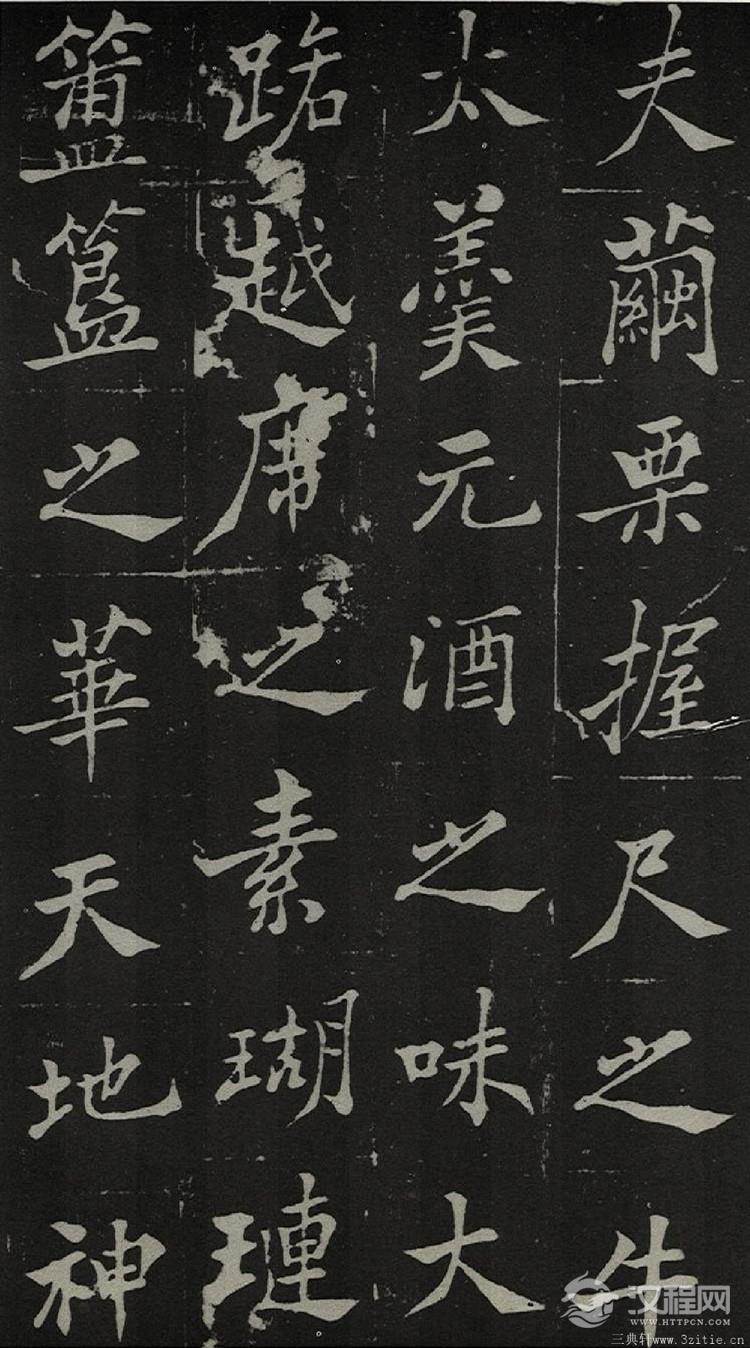 夫繭栗握尺之牛
太羹元酒之味大
路越席之素瑚璉
簠簋之華天地神
汉程网
WWW.HTTPCN.COM
三典轩www.3zitie.cn